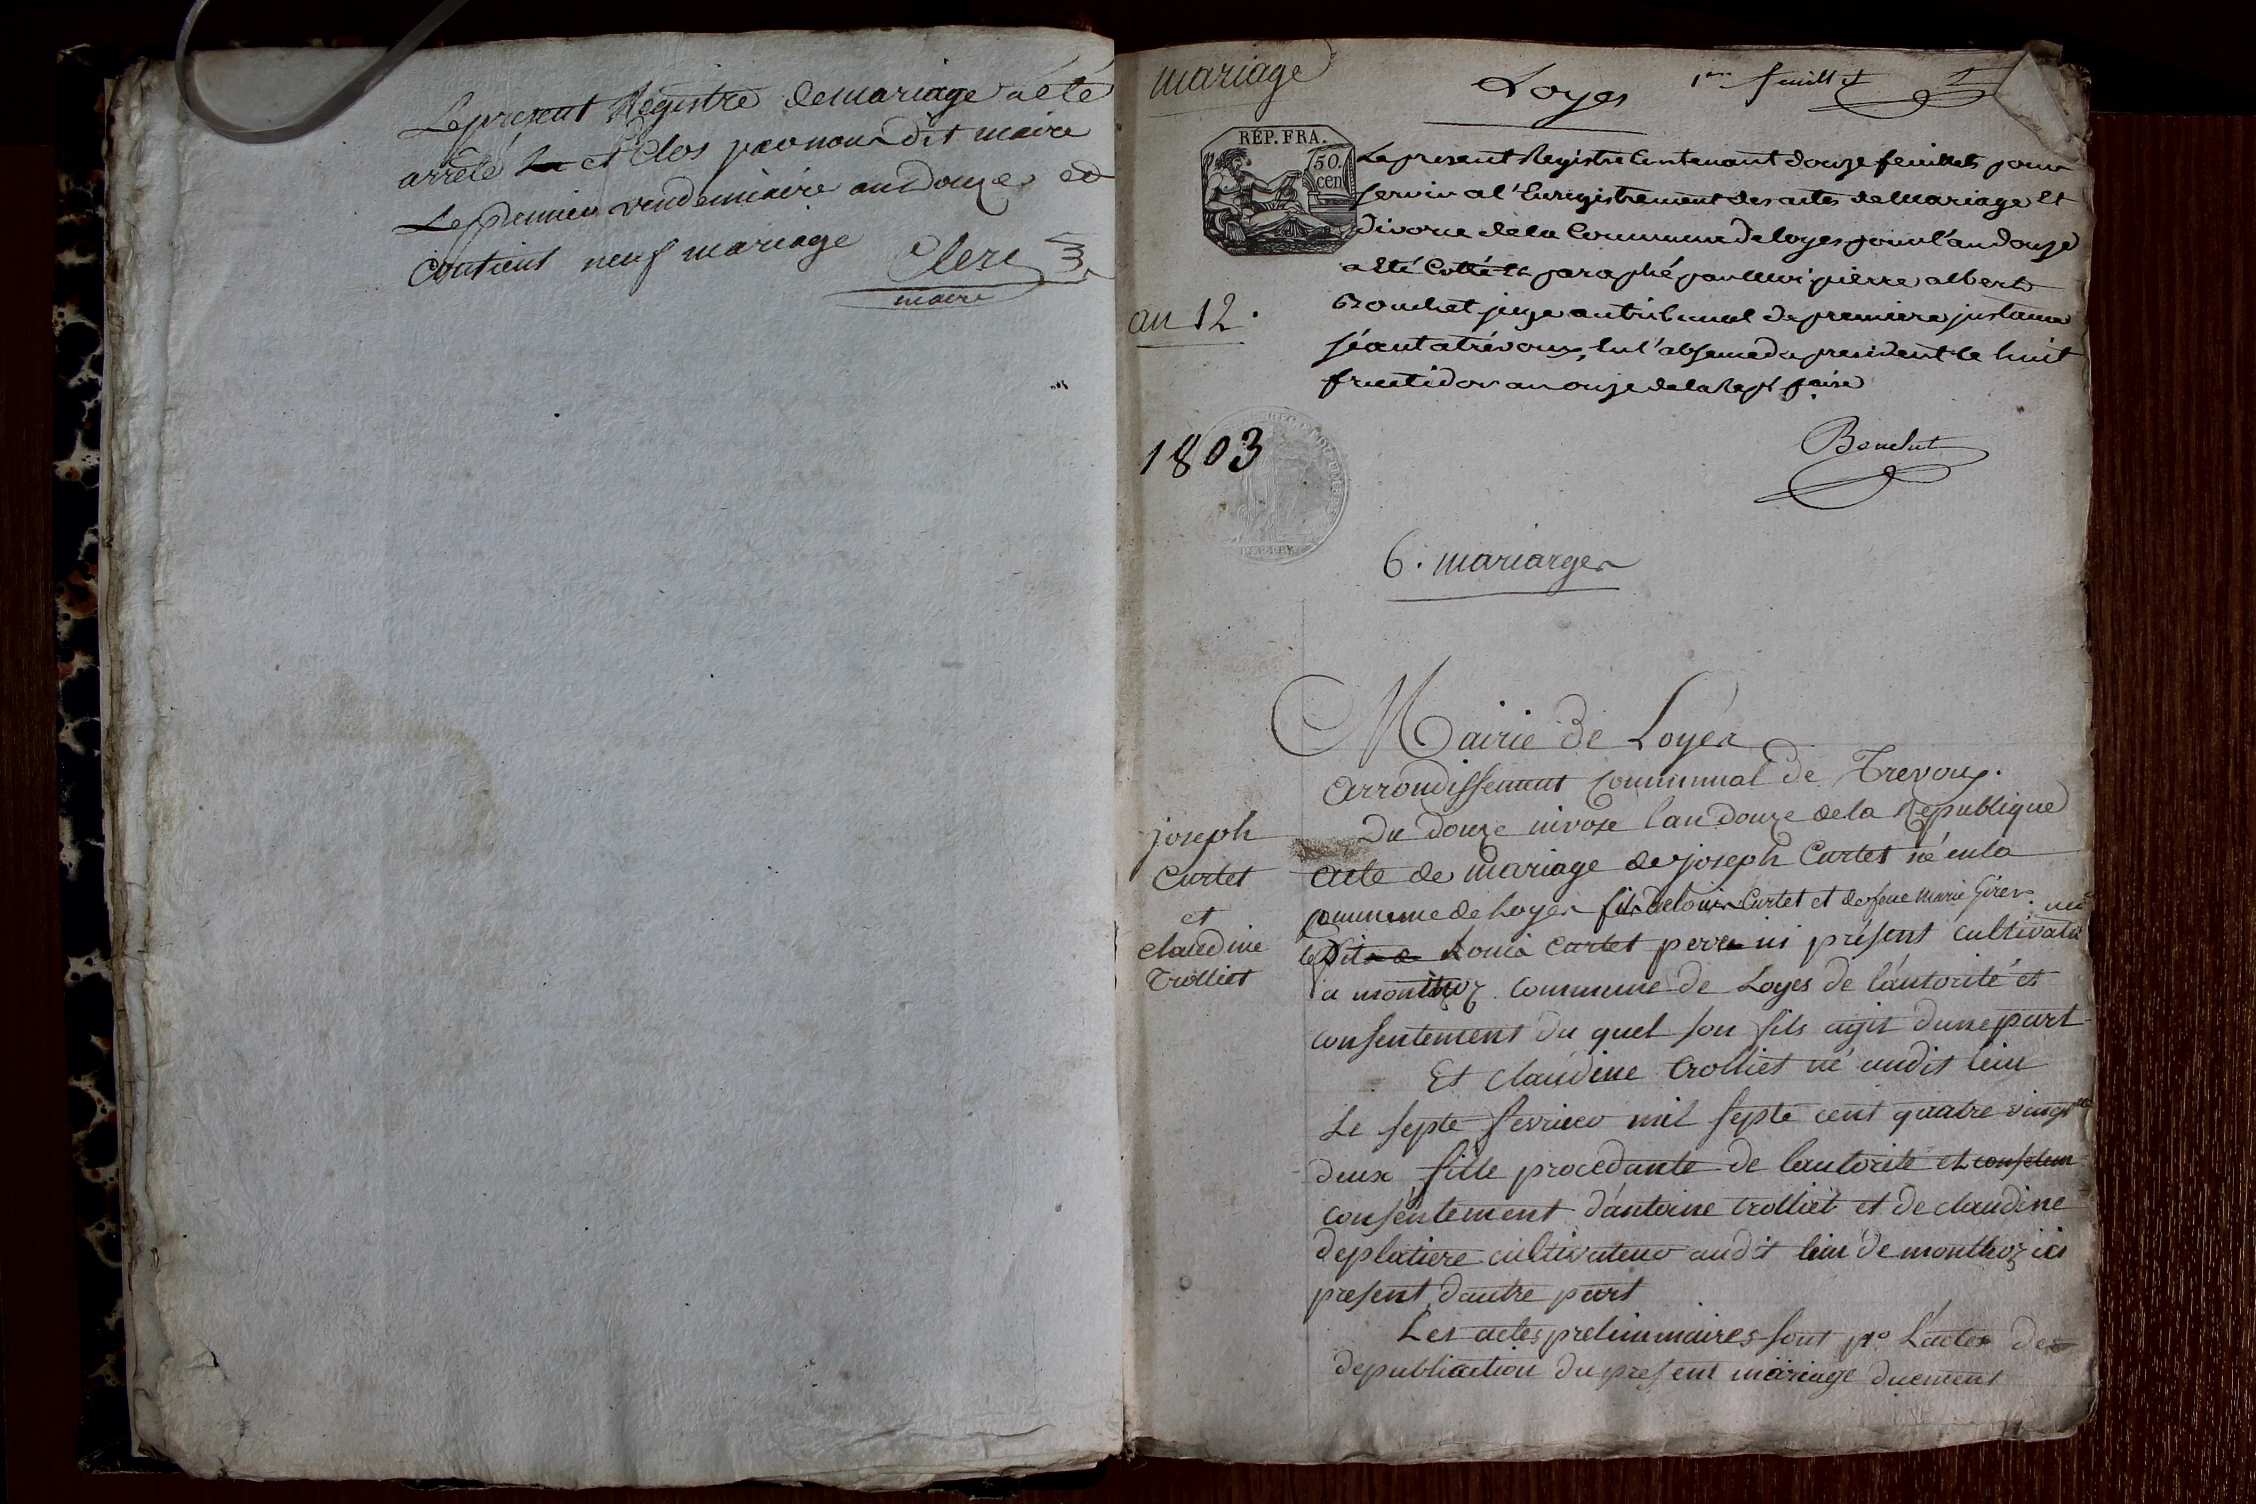 Le present Registre de mariage a été
arrêté et clos par nous dit maire
Le premier vendemiaire an douze
contient neuf mariage
Clerc
maire
mariage
Loyes
1er feuillet
RÉP. FRA.
50.
cen
Le present Registre Contenant douze feuillets pour
servir a l'Enregistrement des actes de Mariage Et
divorce de la Commune de loyes pour l'an douze
a Eté Cotté Et paraphé par Moi pierre albert
Bouchet juge au tribunal de premiere instance
séant a trévoux, En l'absence du president le huit
fructidor an onze de la Rep. f.aise
an 12.
1803
6. mariages
Mairie de Loyes
Arrondissement Communal de Trevoux.
Du douze nivose l'an douze de la Republique
joseph
Curtet
et
claudine
Trolliet
acte de mariage de joseph Curtet né en la
commune de Loyes fils de louis Curtet et de feue Marie
Louis Curtet pere ici présent cultivateur
a monthoz Commune de Loyes de l'autorité et
consentement du quel son fils agit dune part
Et claudine trolliet né audit lieu
Le septe fevrier mil septe cent quatre vingt
deux fille procedante de lautorité et consetem
consentement d'antoine trolliet et de claudine
deplatiere cultivateur audit lieu de monthoz ici
present dautre part
Les actes preliminaires sont 1o. L'actes des
de publication du present mariage duement